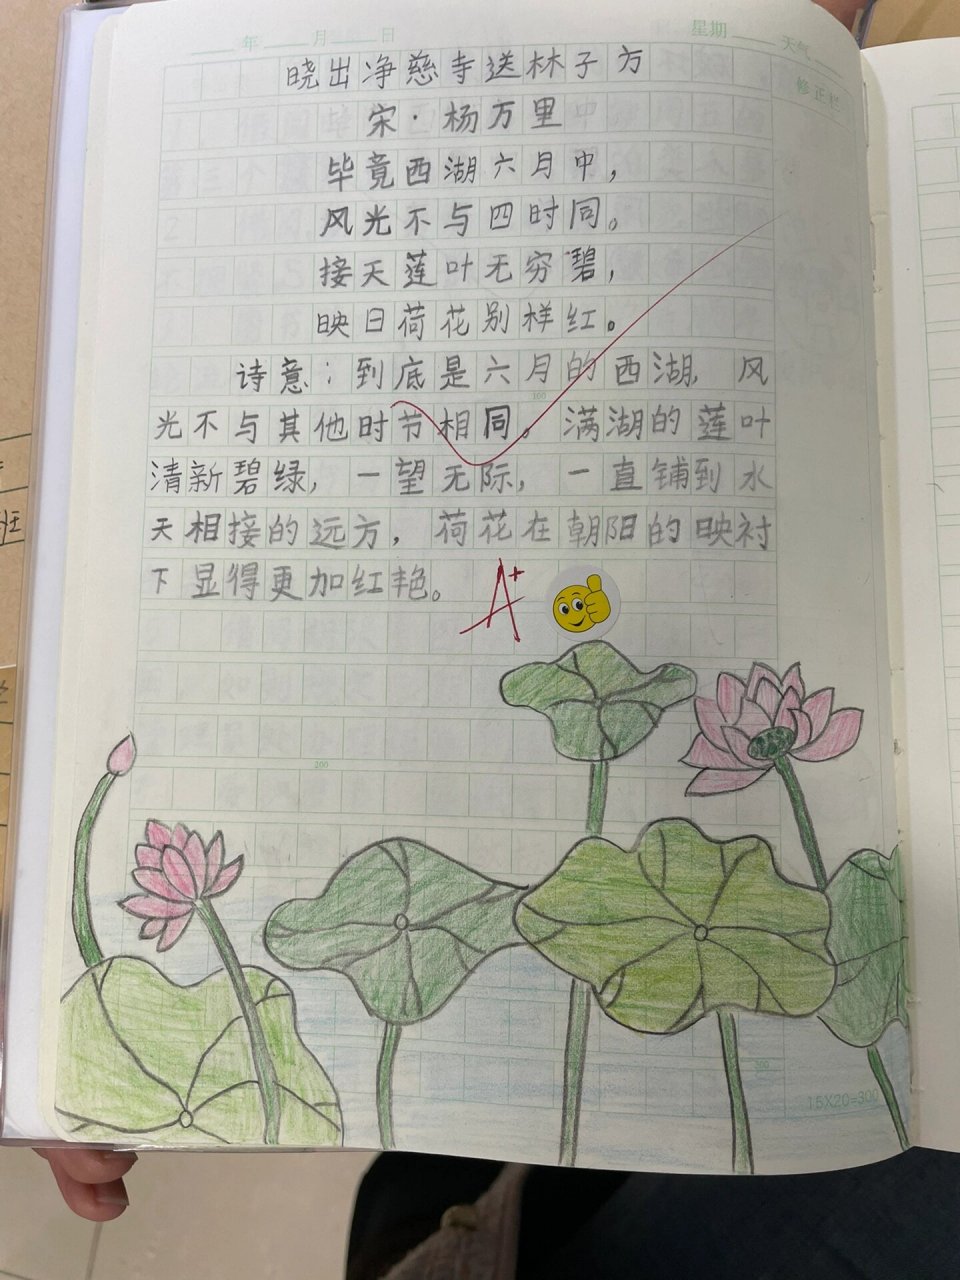 年 月 日 星期 天气
修正栏
晓出净慈寺送林子方
宋·杨万里
毕竟西湖六月中，
风光不与四时同。
接天莲叶无穷碧，
映日荷花别样红。
诗意：到底是六月的西湖，风
光不与其他时节相同。满湖的莲叶
清新碧绿，一望无际，一直铺到水
天相接的远方，荷花在朝阳的映衬
下显得更加红艳。
A+
100
200
300
15X20=300
班